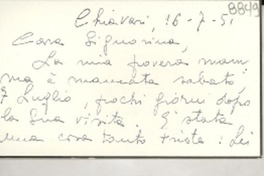 8849
Chiavari, 16-7-51
Cara Signorina,
La mia povera mam
ma è mancata sabato
7 Luglio, pochi giorni dopo
la Sua visita. È stata
una cosa tanto triste: Lei